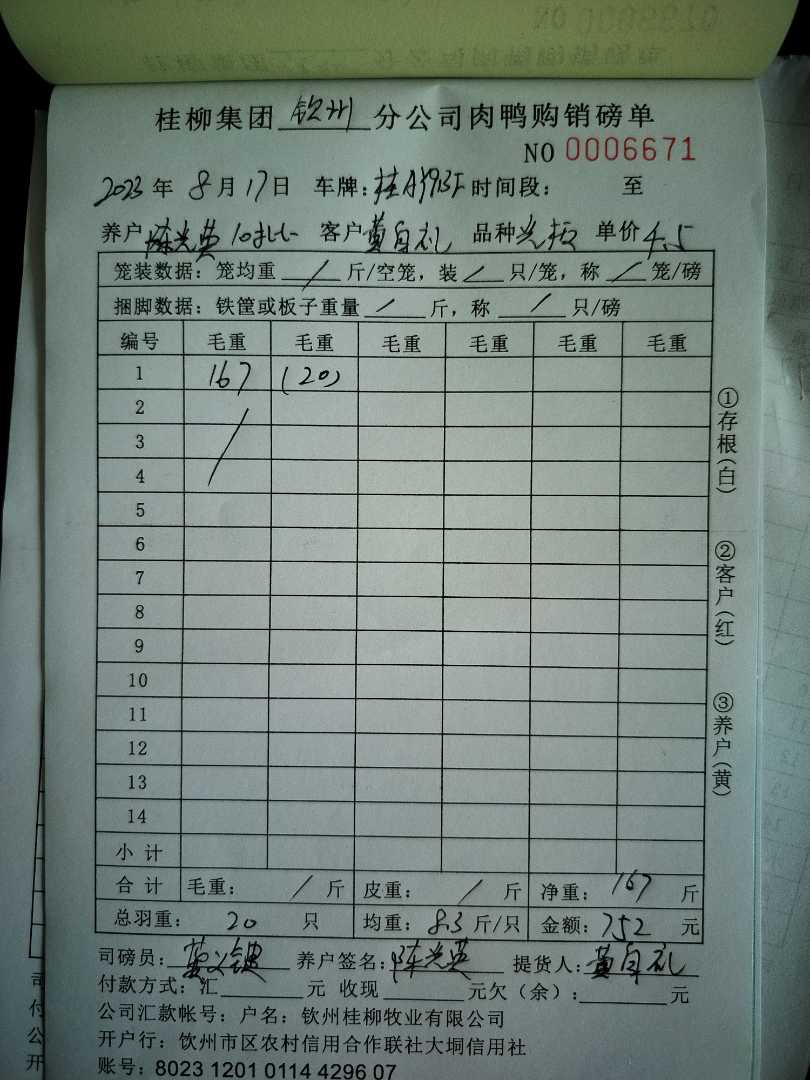 桂柳集团 钦州 分公司肉鸭购销磅单
NO 0006671
2023 年 8 月 17 日 车牌: 时间段: 至
养户 陈光英 客户 黄自礼 品种 光板 单价 4.5
笼装数据: 笼均重 / 斤/空笼, 装 / 只/笼, 称 / 笼/磅
捆脚数据: 铁筐或板子重量 / 斤, 称 / 只/磅
编号 毛重 毛重 毛重 毛重 毛重 毛重
1 167 (20)
2
3
4
5
6
7
8
9
10
11
12
13
14
小 计
合 计 毛重: / 斤 皮重: / 斤 净重: 167 斤
总羽重: 20 只 均重: 8.3 斤/只 金额: 752 元
司磅员: 养户签名: 陈光英 提货人: 黄自礼
付款方式: 汇 元 收现 元欠(余): 元
公司汇款帐号: 户名: 钦州桂柳牧业有限公司
开户行: 钦州市区农村信用合作联社大垌信用社
账号: 8023 1201 0114 4296 07
①存根(白)
②客户(红)
③养户(黄)